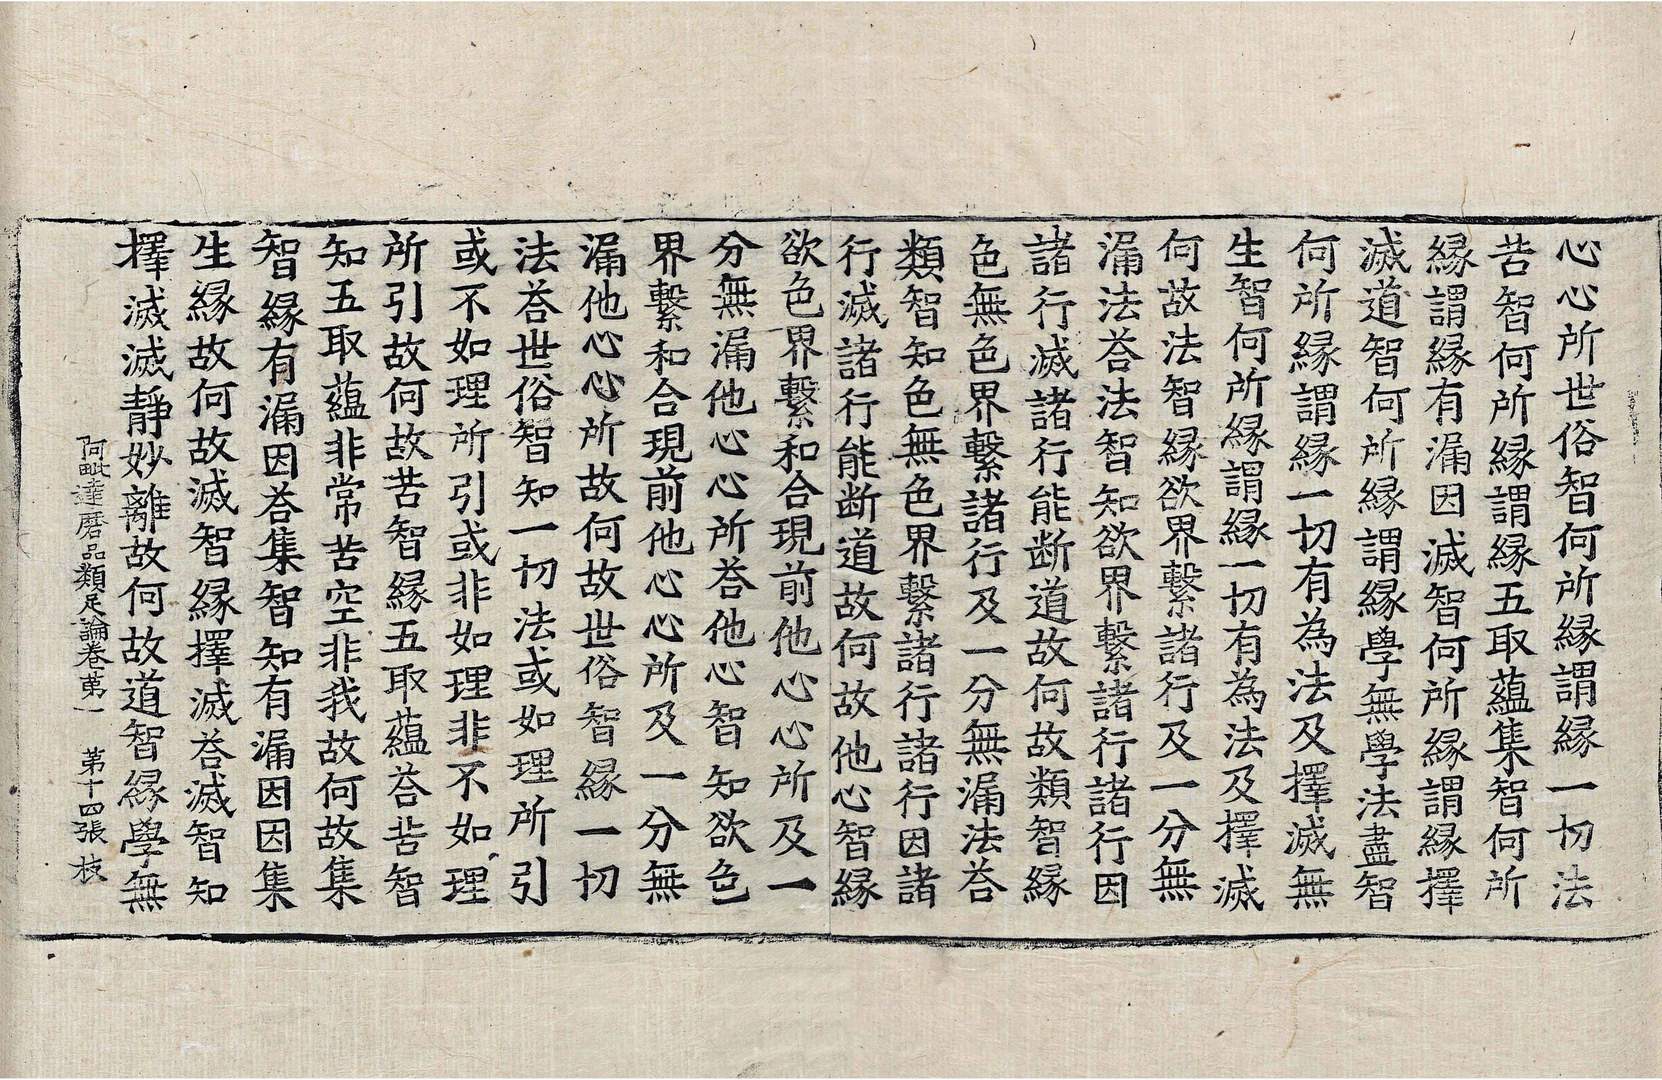 心心所世俗智何所縁謂縁一切法
苦智何所縁謂縁五取蘊集智何所
縁謂縁有漏因滅智何所縁謂縁擇
滅道智何所縁謂縁學無學法盡智
何所縁謂縁一切有為法及擇滅無
生智何所縁謂縁一切有為法及擇滅
何故法智縁欲界繫諸行及一分無
漏法荅法智知欲界繫諸行諸行因
諸行滅諸行能断道故何故類智縁
色無色界繫諸行及一分無漏法荅
類智知色無色界繫諸行諸行因諸
行滅諸行能断道故何故他心智縁
欲色界繫和合現前他心心所及一
分無漏他心心所荅他心智知欲色
界繫和合現前他心心所及一分無
漏他心心所故何故世俗智縁一切
法荅世俗智知一切法或如理所引
或不如理所引或非如理非不如理
所引故何故苦智縁五取蘊荅苦智
知五取蘊非常苦空非我故何故集
智縁有漏因荅集智知有漏因因集
生縁故何故滅智縁擇滅荅滅智知
擇滅滅靜妙離故何故道智縁學無
阿毗達磨品類足論卷苐一 第十四張 枝